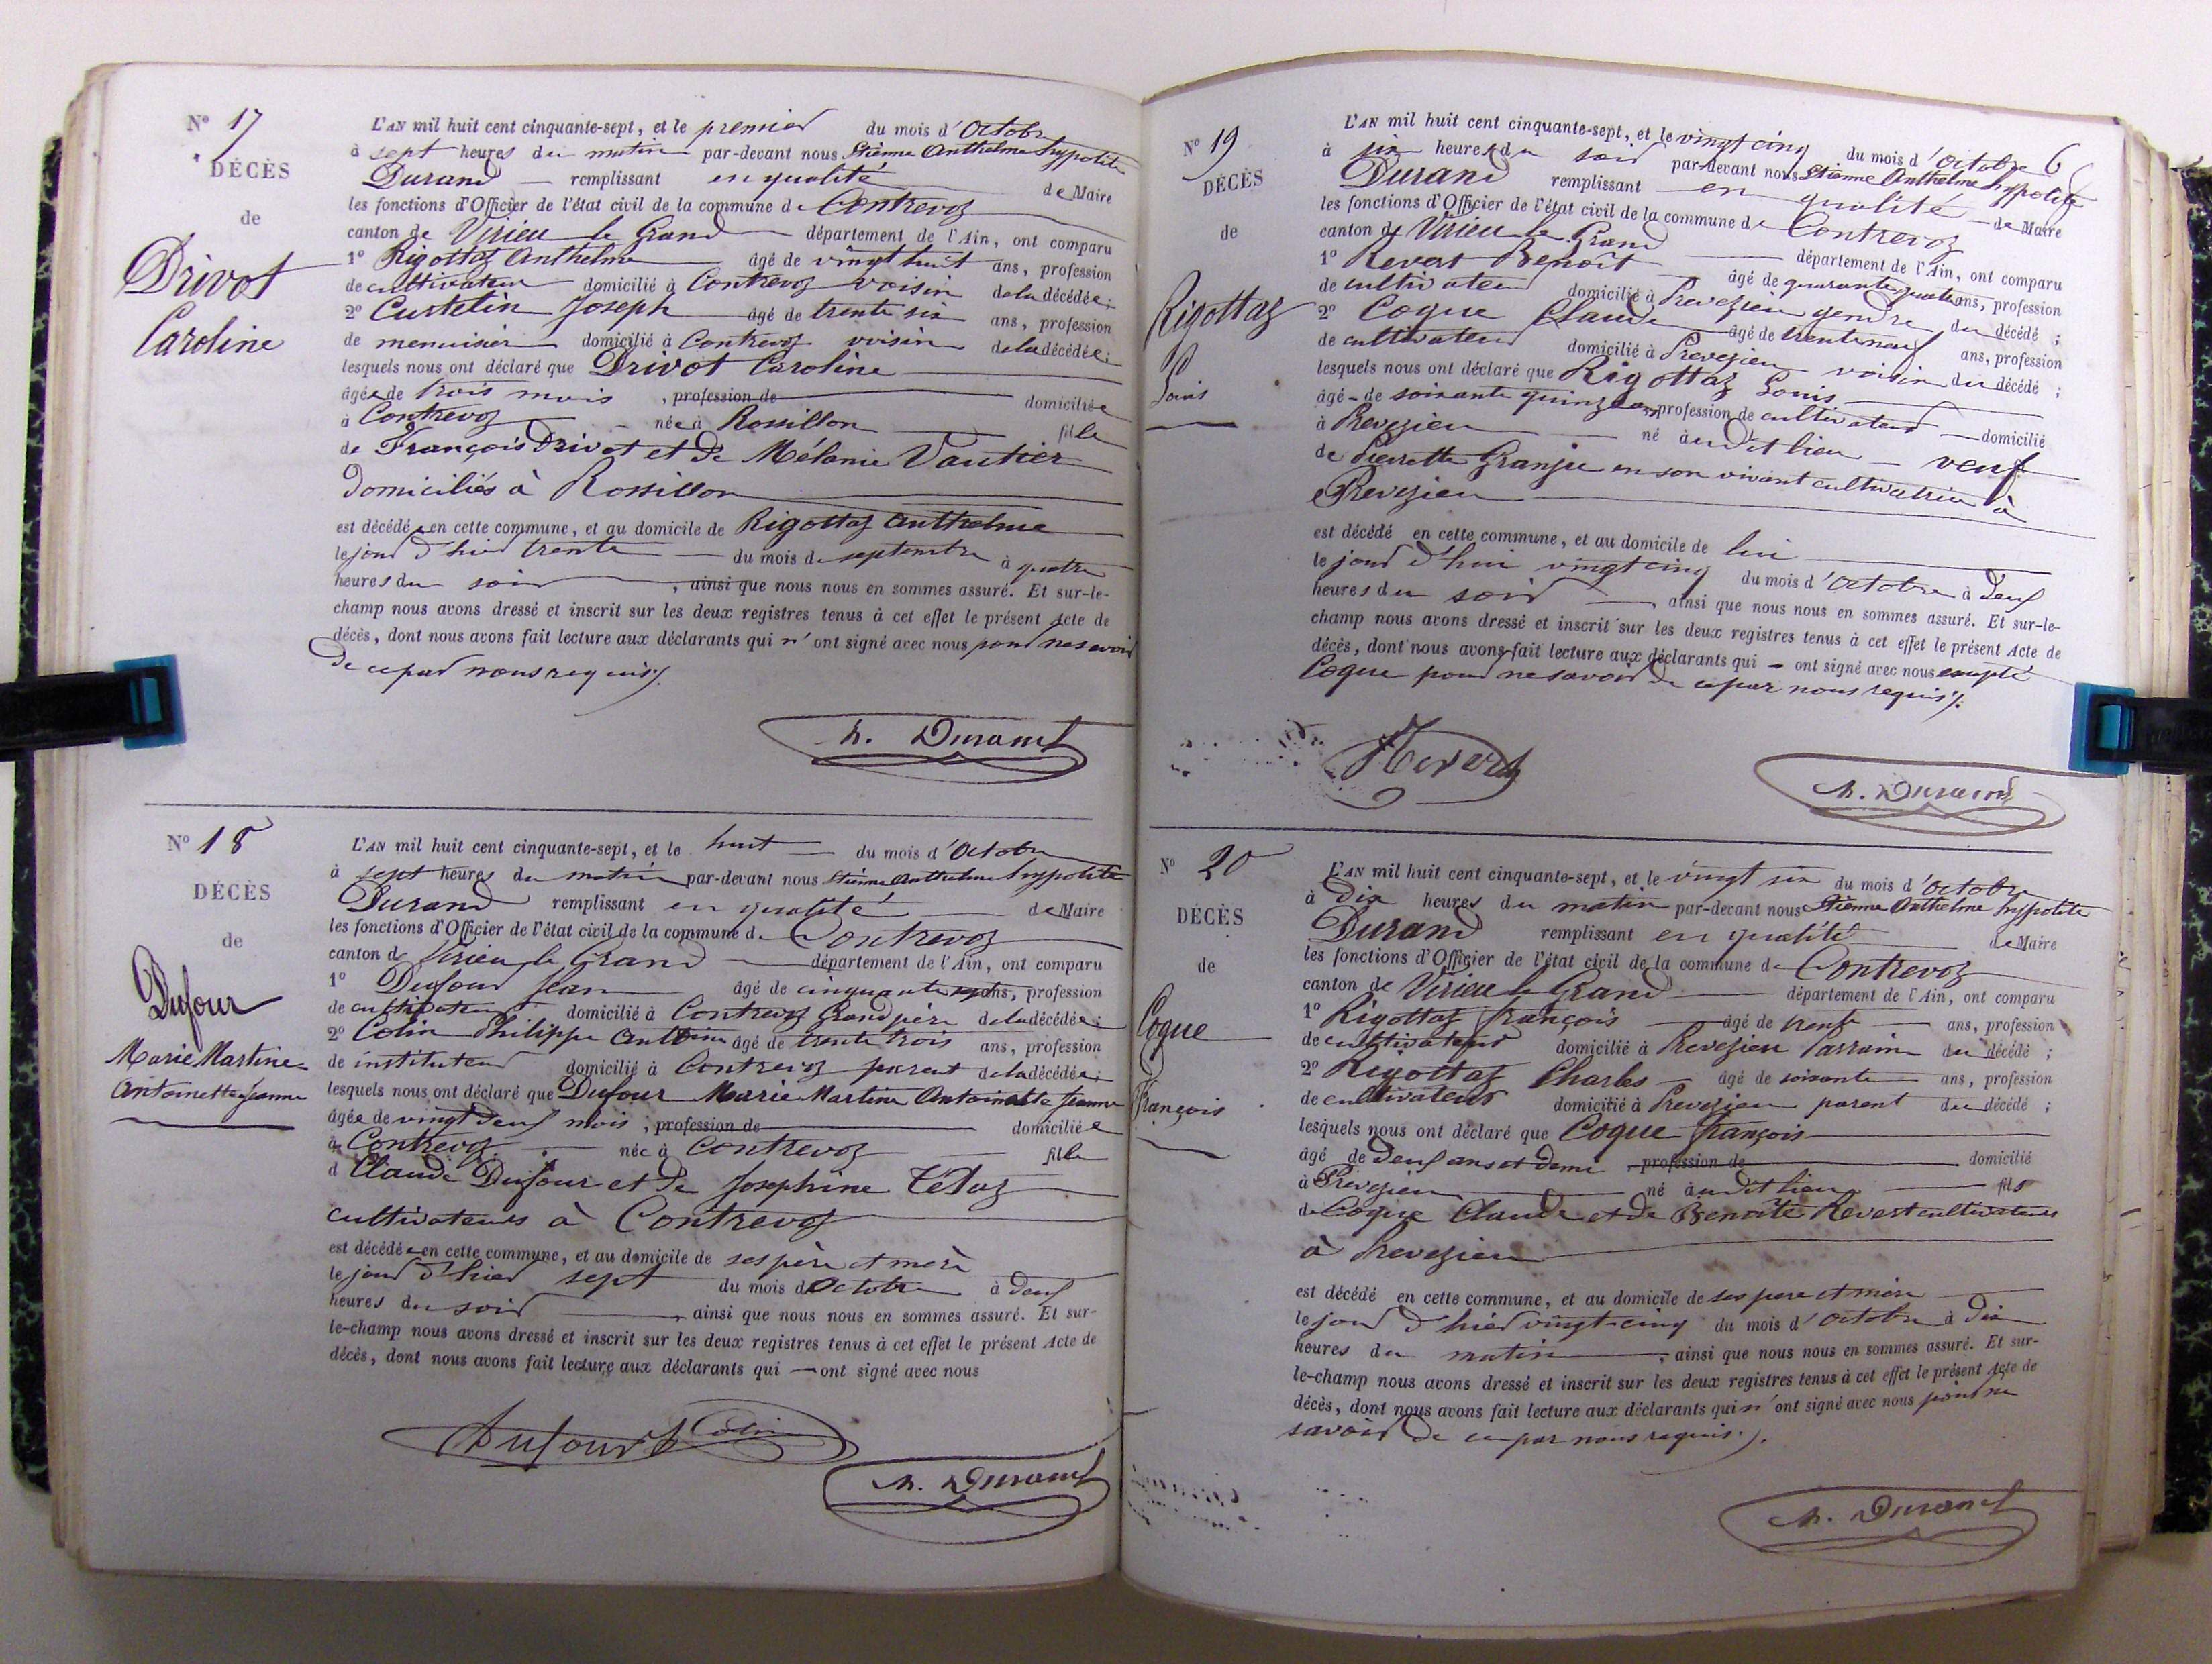 N° 17
DÉCÈS
de
Drivot
Caroline
L'AN mil huit cent cinquante-sept, et le premier du mois d'Octobre
à sept heures du matin par-devant nous Etienne Anthelme hyppolite
Durand — remplissant en qualité de Maire
les fonctions d'Officier de l'état civil de la commune de Contrevoz
canton de Virieu le Grand département de l'Ain, ont comparu
1° Rigottaz Anthelme âgé de vingt huit ans, profession
de cultivateur domicilié à Contrevoz voisin de la décédée;
2° Curtelin Joseph âgé de trente six ans, profession
de menuisier domicilié à Contrevoz voisin de la décédée;
lesquels nous ont déclaré que Drivot Caroline
âgée de trois mois, profession de domiciliée
à Contrevoz née à Rossillon fille
de François Drivot et de Mélanie Vautier
domiciliés à Rossillon
est décédée en cette commune, et au domicile de Rigottaz Anthelme
le jour d'hier trente du mois de septembre à quatre
heures du soir, ainsi que nous nous en sommes assuré. Et sur-le-
champ nous avons dressé et inscrit sur les deux registres tenus à cet effet le présent Acte de
décès, dont nous avons fait lecture aux déclarants qui n'ont signé avec nous pour ne savoir
de ce par nous requis.
h. Durand
N° 18
DÉCÈS
de
Dufour
Marie Martine
Antoinette Jeanne
L'AN mil huit cent cinquante-sept, et le huit du mois d'Octobre
à sept heures du matin par-devant nous Etienne Anthelme hyppolite
Durand remplissant en qualité de Maire
les fonctions d'Officier de l'état civil de la commune de Contrevoz
canton de Virieu le Grand département de l'Ain, ont comparu
1° Dufour Jean âgé de cinquante ans, profession
de cultivateur domicilié à Contrevoz Grand père de la décédée;
2° Colin Philippe Antoine âgé de trente trois ans, profession
de instituteur domicilié à Contrevoz parent de la décédée;
lesquels nous ont déclaré que Dufour Marie Martine Antoinette Jeanne
âgée de vingt deux mois, profession de domiciliée
à Contrevoz née à Contrevoz fille
d Claude Dufour et de Josephine Tétaz
cultivateurs à Contrevoz
est décédée en cette commune, et au domicile de ses père et mère
le jour d'hier sept du mois d'Octobre à deux
heures du soir, ainsi que nous nous en sommes assuré. Et sur-
le-champ nous avons dressé et inscrit sur les deux registres tenus à cet effet le présent Acte de
décès, dont nous avons fait lecture aux déclarants qui — ont signé avec nous
Dufour Colin
h. Durand
6
N° 19
DÉCÈS
de
Rigottaz
Louis
L'AN mil huit cent cinquante-sept, et le vingt cinq du mois d'Octobre
à six heures du soir par-devant nous Etienne Anthelme hyppolite
Durand remplissant en qualité de Maire
les fonctions d'Officier de l'état civil de la commune de Contrevoz
canton de Virieu le Grand département de l'Ain, ont comparu
1° Revert Benoît âgé de quarante quatre ans, profession
de cultivateur domicilié à Prevezieu gendre du décédé;
2° Coque Claude âgé de trente neuf ans, profession
de cultivateur domicilié à Prevezieu voisin du décédé;
lesquels nous ont déclaré que Rigottaz Louis
âgé de soixante quinze ans, profession de cultivateur domicilié
à Prevezieu né audit lieu veuf
de Pierrette Granjie en son vivant cultivatrice à
Prevezieu
est décédé en cette commune, et au domicile de lui
le jour d'hui vingt cinq du mois d'Octobre à deux
heures du soir, ainsi que nous nous en sommes assuré. Et sur-le-
champ nous avons dressé et inscrit sur les deux registres tenus à cet effet le présent Acte de
décès, dont nous avons fait lecture aux déclarants qui — ont signé avec nous excepté
Coque pour ne savoir de ce par nous requis.
Revert
h. Durand
N° 20
DÉCÈS
de
Coque
François
L'AN mil huit cent cinquante-sept, et le vingt six du mois d'Octobre
à dix heures du matin par-devant nous Etienne Anthelme hyppolite
Durand remplissant en qualité de Maire
les fonctions d'Officier de l'état civil de la commune de Contrevoz
canton de Virieu le Grand département de l'Ain, ont comparu
1° Rigottaz françois âgé de trente ans, profession
de cultivateur domicilié à Prevezieu Parrain du décédé;
2° Rigottaz Charles âgé de soixante ans, profession
de cultivateur domicilié à Prevezieu parent du décédé;
lesquels nous ont déclaré que Coque françois
âgé de deux ans et demi profession de domicilié
à Prevezieu né audit lieu fils
de Coque Claude et de Benoîte Revert cultivateurs
à Prevezieu
est décédé en cette commune, et au domicile de ses père et mère
le jour d'hier vingt-cinq du mois d'Octobre à dix
heures du matin, ainsi que nous nous en sommes assuré. Et sur-
le-champ nous avons dressé et inscrit sur les deux registres tenus à cet effet le présent Acte de
décès, dont nous avons fait lecture aux déclarants qui n'ont signé avec nous pour ne
savoir de ce par nous requis.
h. Durand